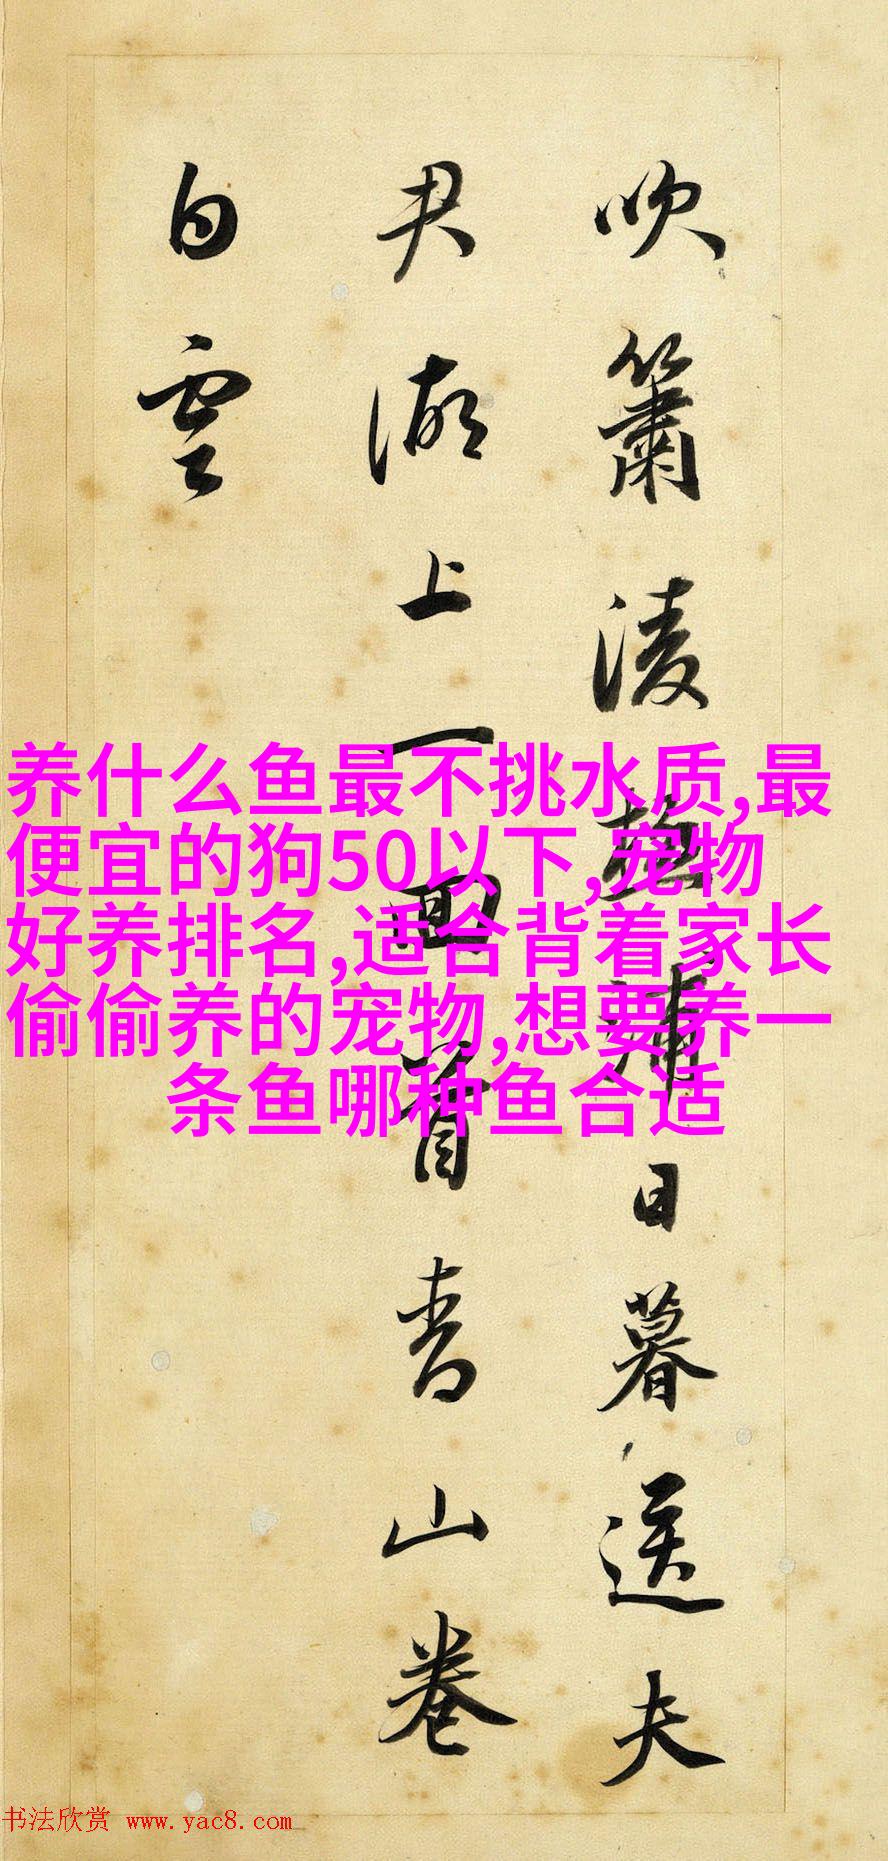 吹簫凌極浦日暮送夫
君湖上一回首青山卷
白雲
养什么鱼最不挑水质,最
便宜的狗50以下,宠物
好养排名,适合背着家长
偷偷养的宠物,想要养一
条鱼哪种鱼合适
书法欣赏 www.yac8.com